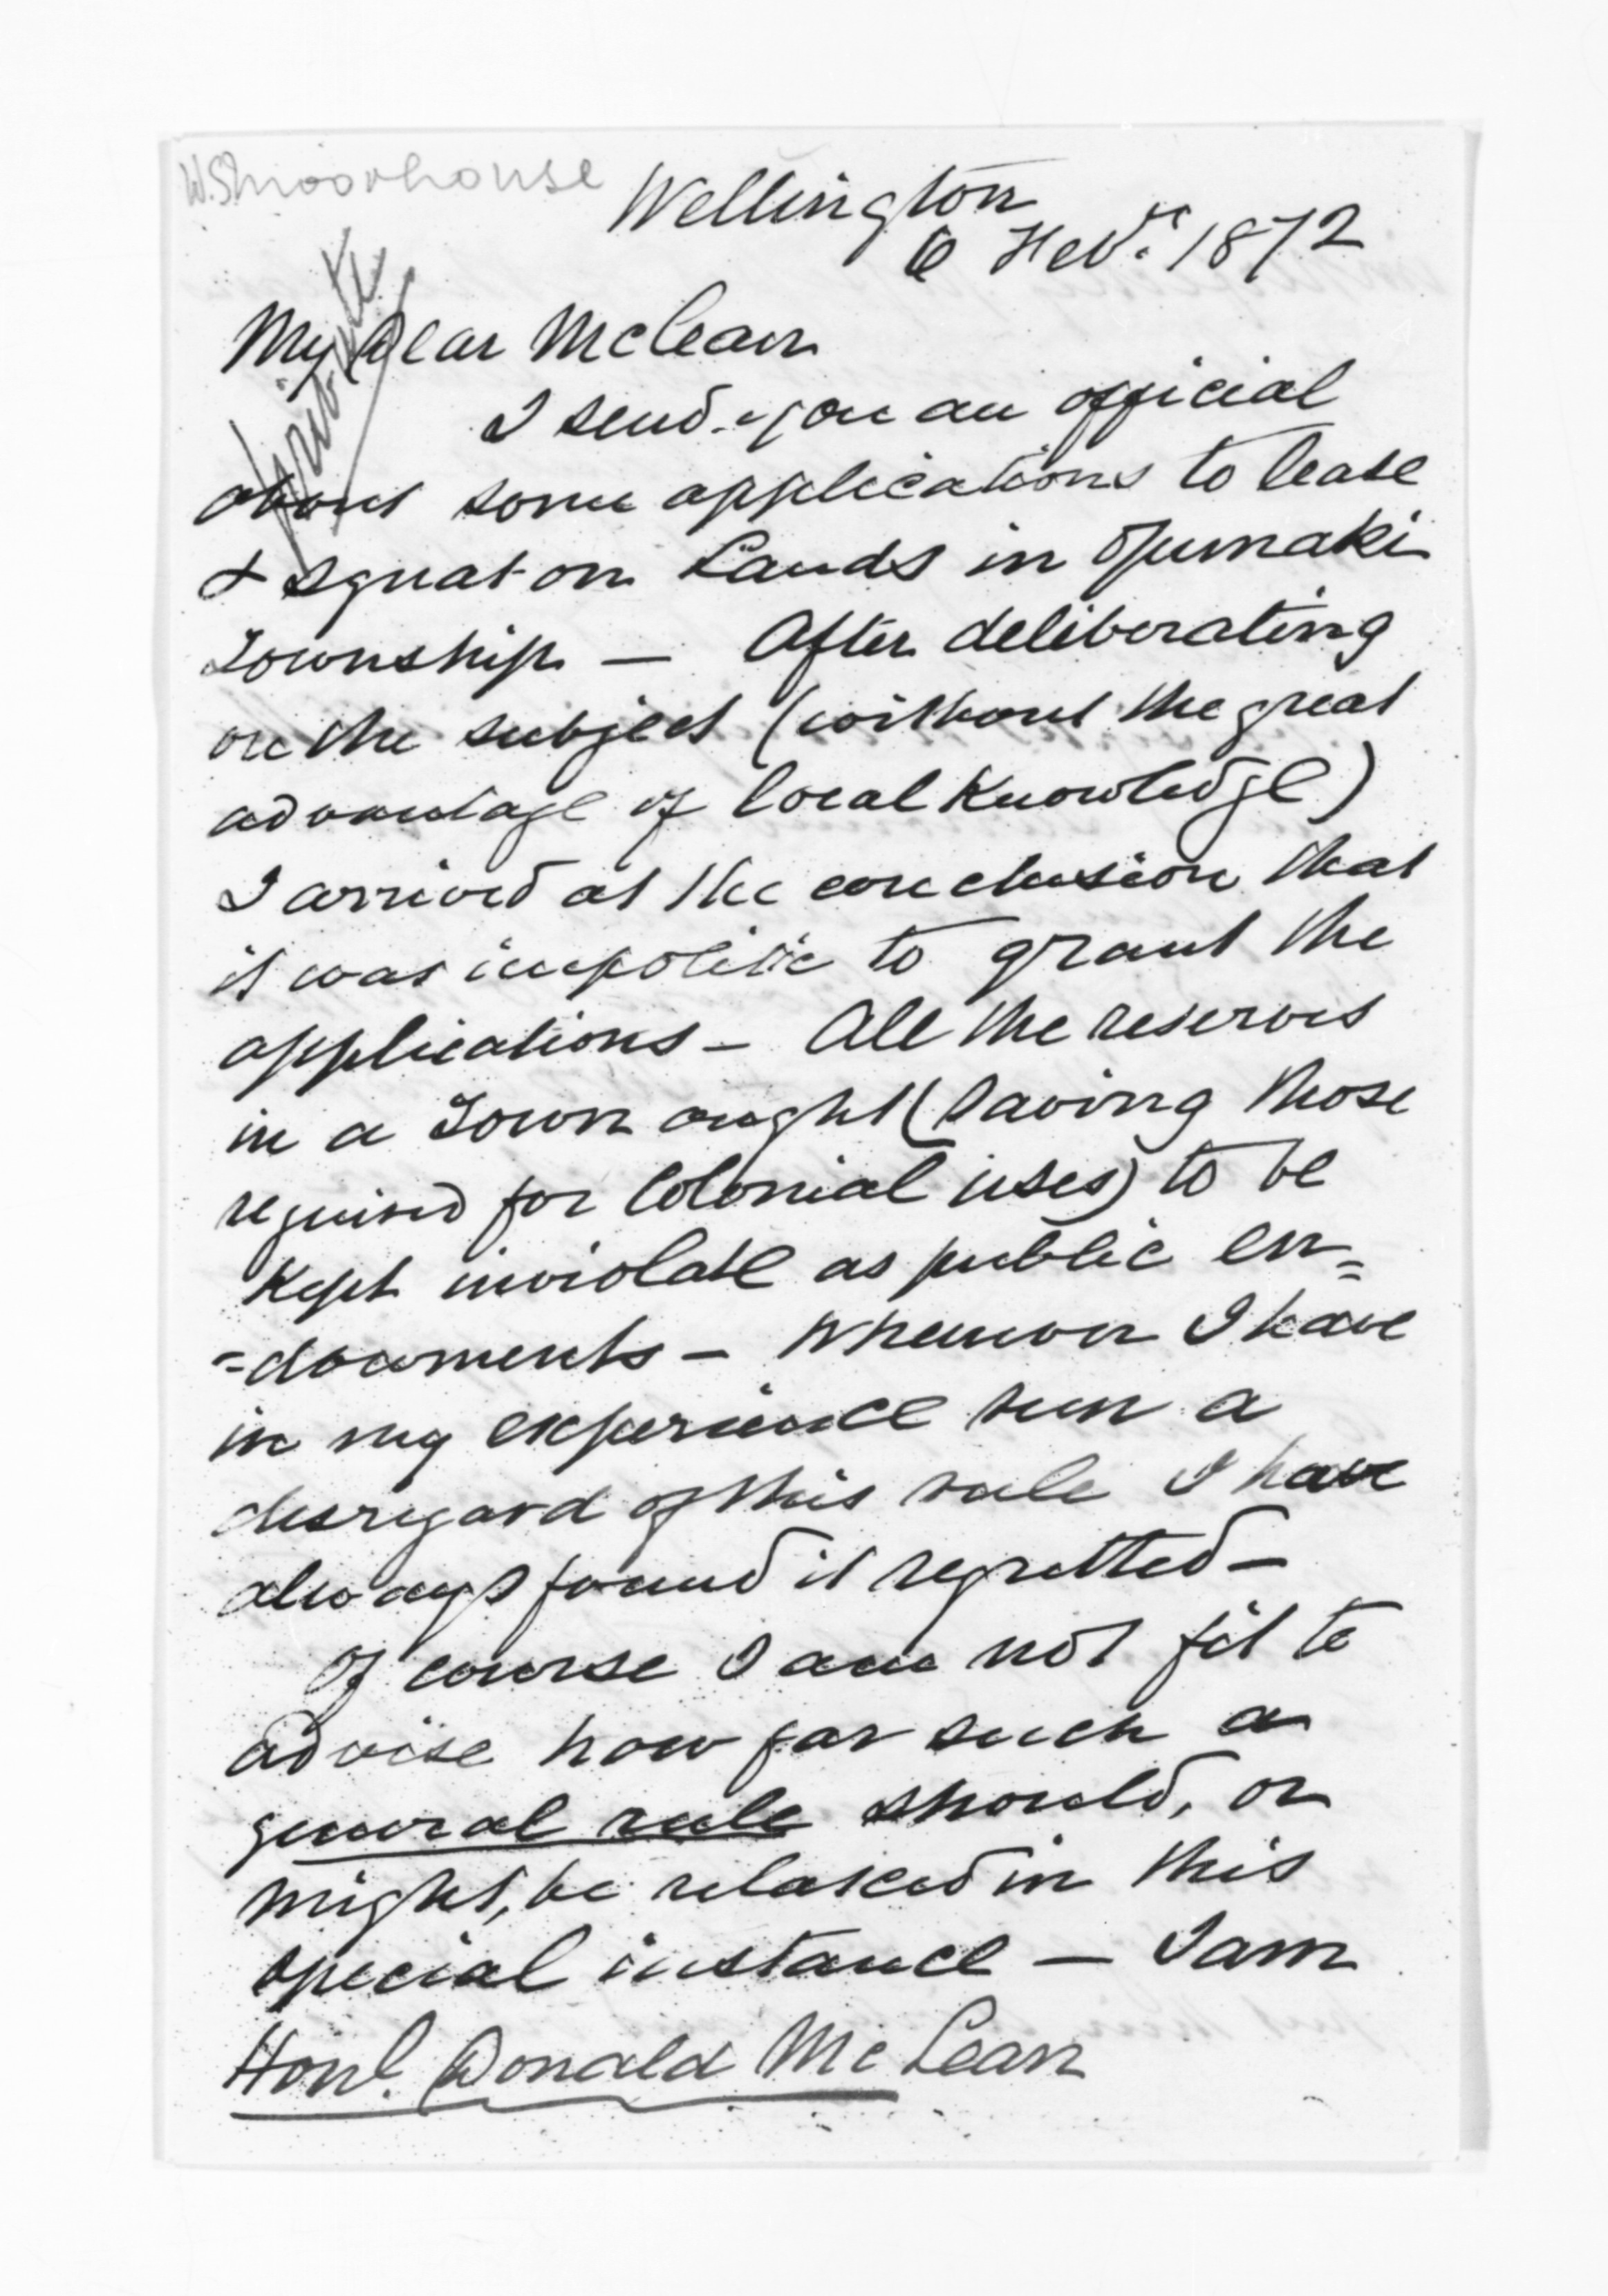 W.S. Moorhouse
Wellington
6 Feby. 1872
Private
My Dear McLean
I send you an official
about some applications to lease
& squat on Lands in Opunaki
Township — After deliberating
on the subject (without the great
advantage of local knowledge)
I arrived at the conclusion that
it was impolitic to grant the
applications — All the reserves
in a Town ought (saving those
required for Colonial uses) to be
kept inviolate as public en=
=dowments — Whenever I have
in my experience seen a
disregard of this rule I have
always found it regretted —
Of course I am not fit to
advise how far such a
general rule should, or
might, be relaxed in this
special instance — I am
Honl. Donald McLean